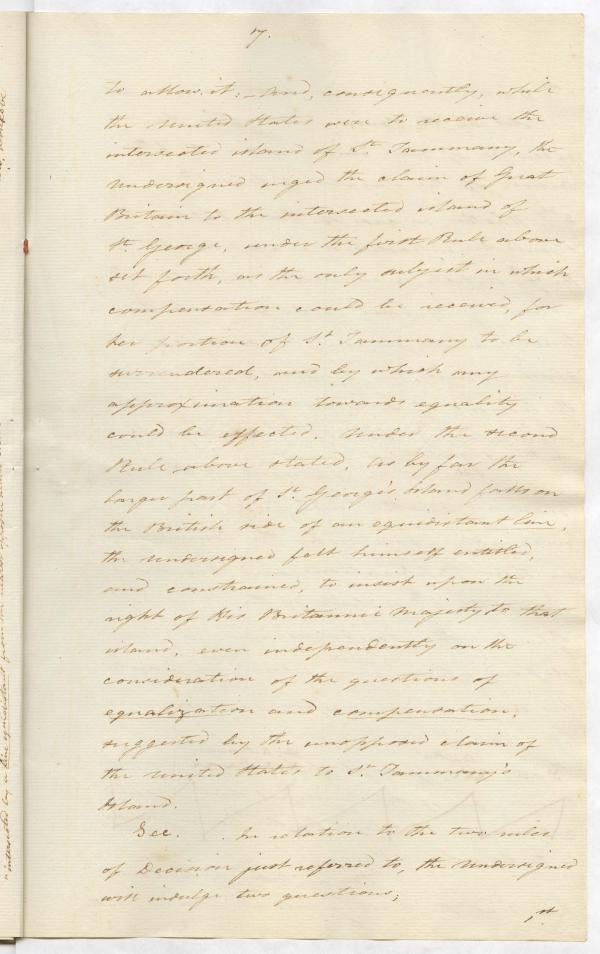 7.
to allow it; – And, consequently, while
the United States were to receive the
intersected island of St. Tammany, the
Undersigned urged the claim of Great
Britain to the intersected island of
St. George, under the first Rule above
set forth, as the only subject in which
compensation could be received, for
her portion of St. Tammany to be
surrendered, and by which any
approximation towards equality
could be effected. Under the second
Rule above stated, as by far the
larger part of St. George's island falls on
the British side of an equidistant line,
the Undersigned felt himself entitled,
and constrained, to insist upon the
right of His Britannic Majesty to that
island, even independently on the
consideration of the questions of
equalization and compensation,
suggested by the unopposed claim of
the United States to St. Tammany's
Island.
Sec. . In relation to the two rules
of Decision just referred to, the Undersigned
will indulge two questions;
1st.
"intersected by a line equidistant from